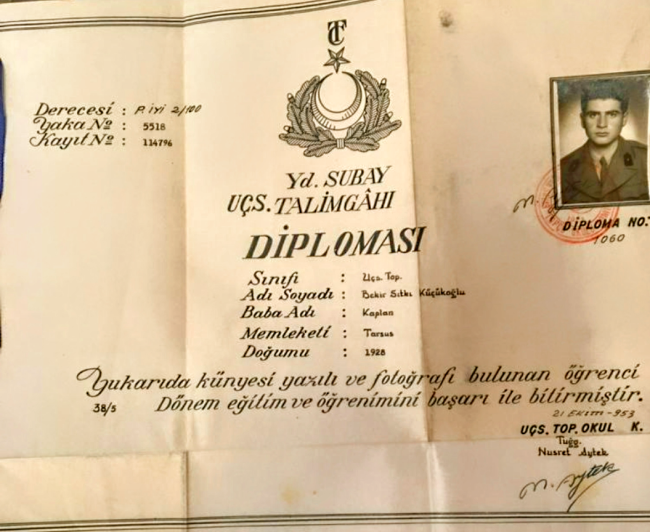 TC
Derecesi : P. iyi 2/100
Yaka No : 5518
Kayıt No : 114796
Yd. SUBAY
UÇS. TALİMGÂHI
DİPLOMASI
Sınıfı : Uçs. Top.
Adı Soyadı : Bekir Sıtkı Küçükoğlu
Baba Adı : Kaplan
Memleketi : Tarsus
Doğumu : 1928
DİPLOMA NO.
1060
Yukarıda künyesi yazılı ve fotoğrafı bulunan öğrenci
38/5 Dönem eğitim ve öğrenimini başarı ile bitirmiştir.
21 Ekim-953
UÇS. TOP. OKUL K.
Tuğg.
Nusret Aytek
N. Aytek